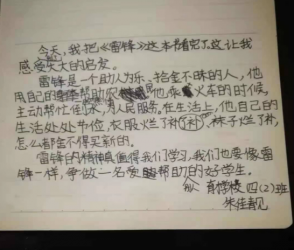 今天,我把《雷锋》这本书看完了,这让我
感受大大的启发。
雷锋是一个助人为乐、拾金不昧的人,他
用自己的帮助 他 火车的时候,
主动帮忙 水,为人民服务。在生活上,他自己的
生活处处节俭,衣服烂了补,袜子烂了补,
怎么都舍不得买新的。
雷锋的精神真值得我们学习,我们也要像雷
锋一样,争做一名爱帮助的好学生。
四(2)班
朱佳